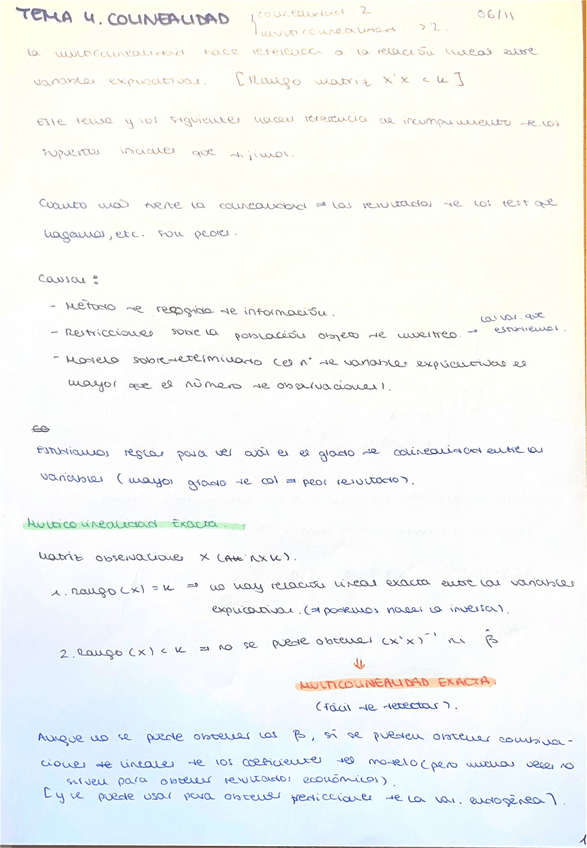 TEMA 4. COLINEALIDAD { colinealidad 2 06/11
multicolinealidad >2.
La multicolinealidad hace referencia a la relación lineal entre
variables explicativas. [Rango matriz X'X < K]
Este tema y los siguientes hacen referencia de incumplimiento de los
supuestos iniciales que dijimos.
Cuanto más fuerte la colinealidad ⇒ los resultados de los test que
hagamos, etc. son peores.
Causas:
- Método de recogida de información.
- Restricciones sobre la población objeto de muestreo. → las var. que
estudiemos.
- Modelo sobredeterminado (el nº de variables explicativas es
mayor que el número de observaciones).
Estudiamos reglas para ver cuál es el grado de colinealidad entre las
variables (mayor grado de col ⇒ peor resultado).
Multicolinealidad Exacta.
Matriz observaciones X (NXK).
1. Rango (X) = K ⇒ no hay relación lineal exacta entre las variables
explicativas. (⇒ podemos hacer la inversa).
2. Rango (X) < K ⇒ no se puede obtener (X'X)⁻¹ ni β̂
⇓
MULTICOLINEALIDAD EXACTA.
(fácil de detectar).
Aunque no se puede obtener los β, sí se pueden obtener combina-
ciones de lineales de los coeficientes del modelo (pero muchas veces no
sirven para obtener resultados económicos).
[y se puede usar para obtener predicciones de la var. endogénea].
1